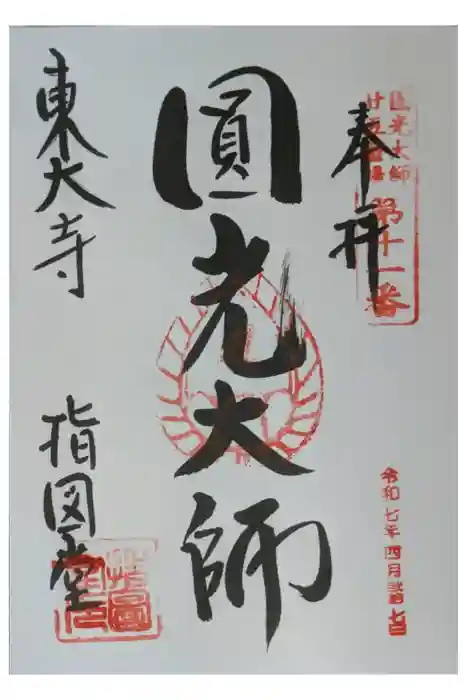 圓光大師
廿五霊場
第十一番
奉拝
令和七年四月弐拾七日
圓光大師
東大寺
指図堂